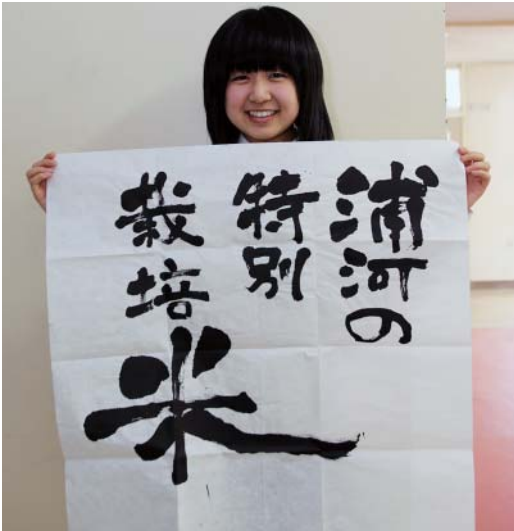 浦河の
特別
栽培米